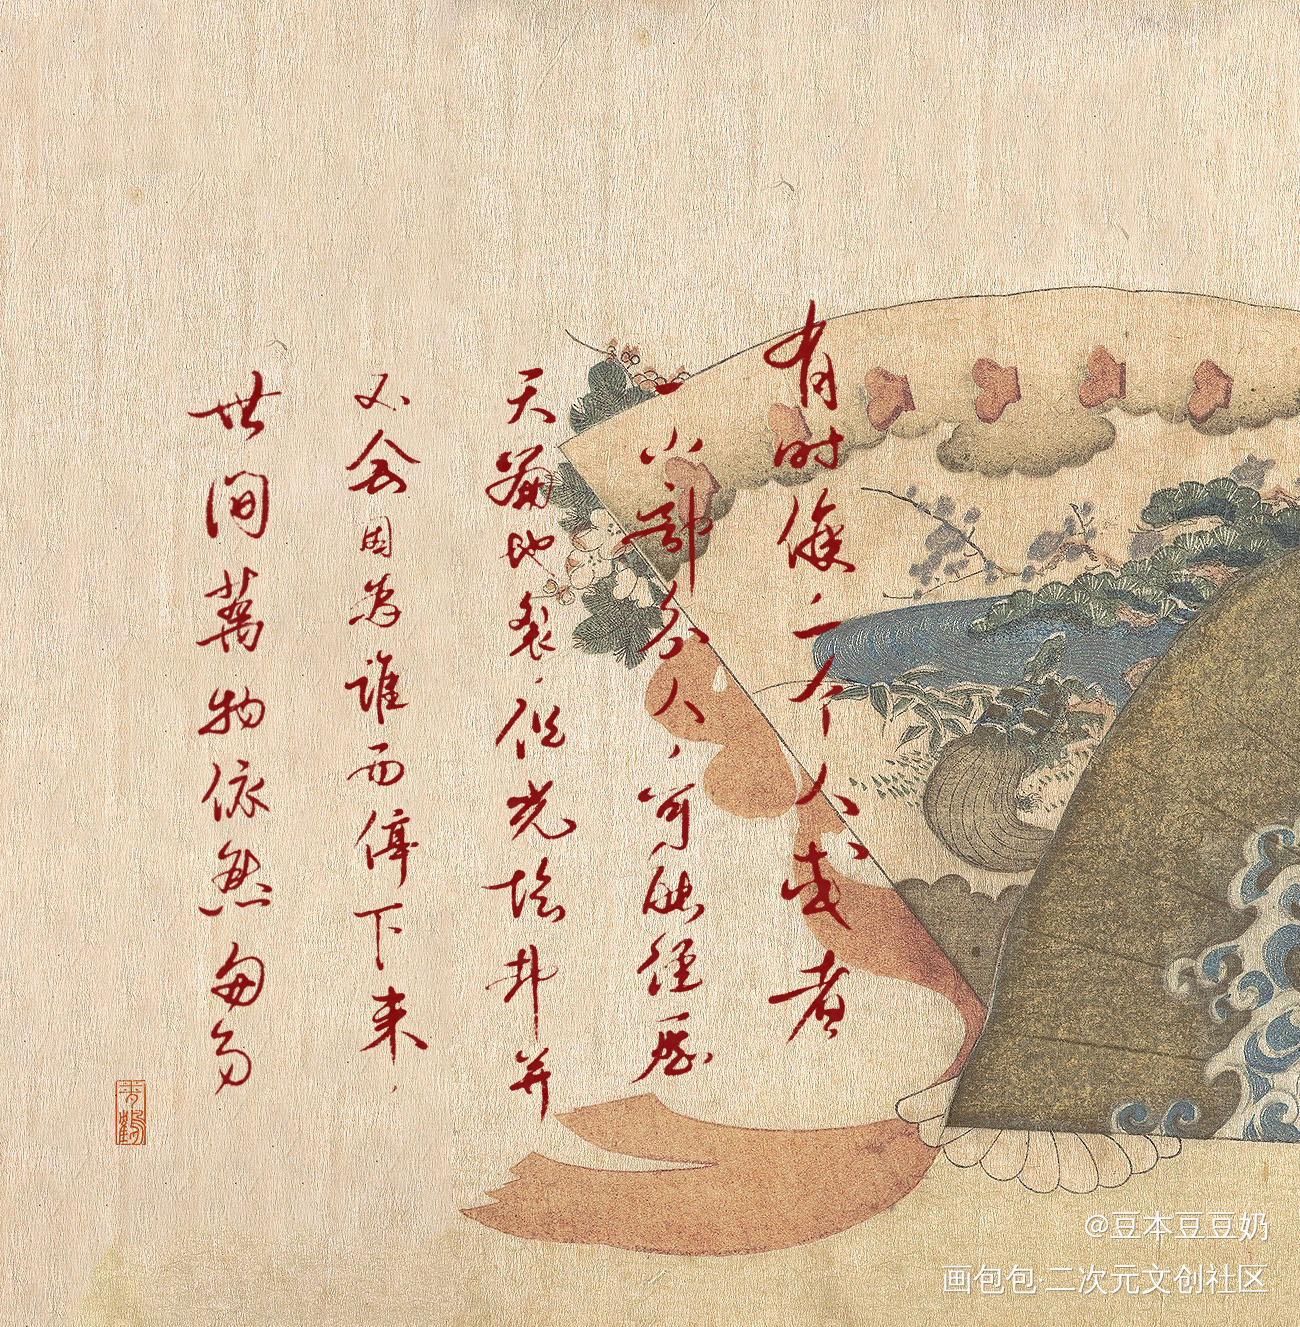 有时候一个人或者
一小部分人，可能经历
天崩地裂，但光阴并
不会因为谁而停下来，
世间萬物依然匆匆
@豆本豆豆奶
画包包·二次元文创社区